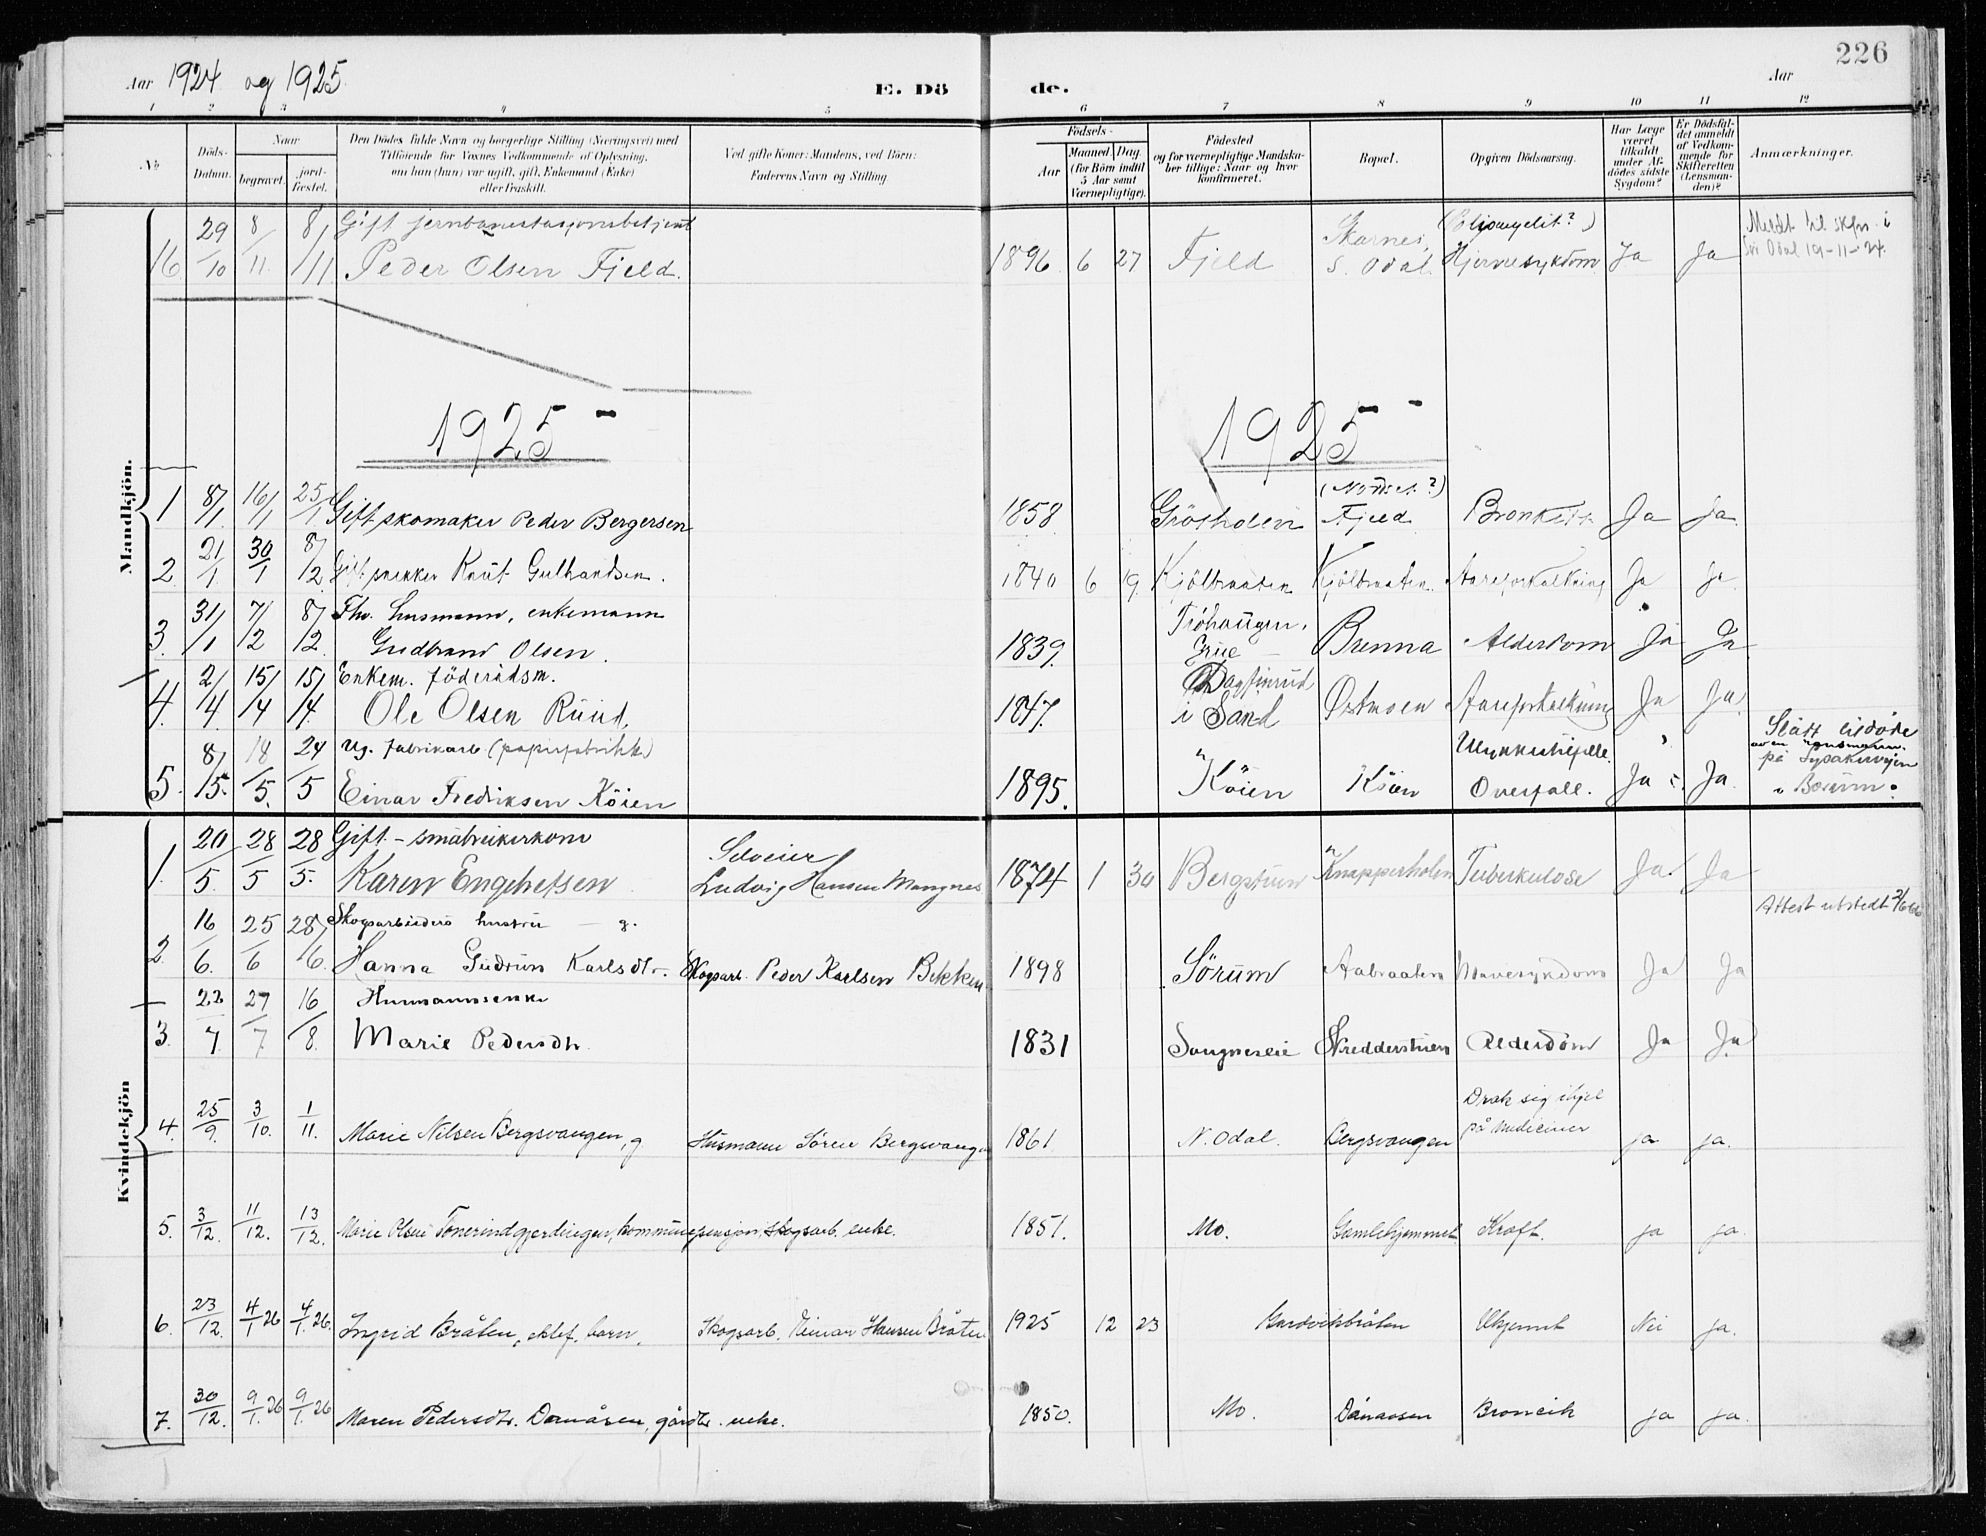 226
Aar 1924 og 1925.
E. Dö de.
Aar
1 2 3 4 5 6 7 8 9 10 11 12
No
Döds-Datum.
Naar
begravet.
jord-fæstet.
Den Dödes fulde Navn og borgerlige Stilling (Næringsvei) med
Tilföiende for Voxnes Vedkommende af Oplysning,
om han (hun) var ugift, gift, Enkemand (Enke)
eller fraskilt.
Ved gifte Koner: Mandens, ved Börn:
Faderens Navn og Stilling
Födsels-
Aar
Maaned. Dag.
(for Börn indtil
5 Aar samt
Værnepligtige).
Födested
og for værnepligtige Mandska-
ber tillige: Naar og hvor
konfirmeret.
Bopæl.
Opgiven Dödsaarsag.
Har Læge
været
tilkaldt
under Af-
dödes sidste
Sygdom?
Er Dödsfal-
det anmeldt
af Vedkom-
mende for
Skifteretten
(Lensman-
den)?
Anmærkninger.
Mandkjön.
29 8/ 8/ Gift jernbanestasjonsbetjent Skarnes, (Poliomyelit?) Meldt til skfr. i
16 /10 11. /11 Peder Olsen Fjeld. 1896 6 27 Fjeld S. Odal. Hjernesykdom Ja Ja Sör Odal 19-11-24.
1925 - 1925 -
1 8/1 16/1 25/1 Gift skomaker Peder Bergersen 1858 Grösholen Fjeld Bronkitt Ja Ja.
2 21/1 30/1 8/2 Gift snekker Knut Gulbrandsen. 1840 6 19 Kjölbraaten Kjölbraaten. Aareforkalkning Ja Ja
31/ 7/ 8/ Fhv. husmann, enkemann Tröhaugen,
3. /1 /2 /2. Gudbrand Olsen. 1839. Grue - Brenna Alderdom Ja Ja
2/ 15/ 15/ Enkem. föderådsm. Dagfinrud
4. /4. /4 /4. Ole Olsen Ruud. 1847. i Sand Østmoen Aareforkalkning Ja Ja.
8/ 18 24 Ug. fabrikarb (papirfabrikk) Ulykkestilfelle. Slått ihjel
5. 15. /5. /5 Einar Fredriksen Köien 1895. Köien Köien Overfall. Ja Ja.
på Lysakerveien
i Bærum.
Kvindekjön
20 28 28 Gift - småbrukerkone Selveier
1. /5. /5 /5. Karen Engebretsen Ludvig Hansen Mangnes 1874 1 30 Bergstun Knapperholen Tuberkulose Ja Ja
16 25 28/ Skogsarbeiders hustru - g. Attest utstedt
2. /6. /6 /6. Hanna Gudrun Karlsdtr. Skogsarb. Peder Karlsen Bekken 1898 Sörum Aabraaten Mavesykdom Ja Ja
22 27 16 Husmannsenke
3. /7. /7 /8. Marie Pedersdtr. 1831 Sougneseie Skredderstuen Alderdom Ja Ja
Drak sig ihjel
4. 25/9. 3/10. 1/11. Marie Nilsen Bergsvangen, g. Husmann Sören Bergsvangen 1861. N. Odal. Bergsvangen på medeciner ja ja.
5. 3/12. 11/12. 13/12. Marie Olsen Tonerindgjerdingen, kommunepensjon. Skogsarb. enke. 1851. Mo. Gamlehjemmet. Kræft. ja ja.
6. 23/12. 4/1 26 4/1. 26. Ingrid Bråten, ektef. barn. Skogsarb. Einar Hansen Bråten 1925 12 23 Gardvikbråten Ukjennt Nei ja.
7. 30/12. 9/1. 26 9/1. 26 Maren Pedersdtr. Danåsen, gårdbr. enke. 1850. Mo. Danaasen Broncik ja ja.